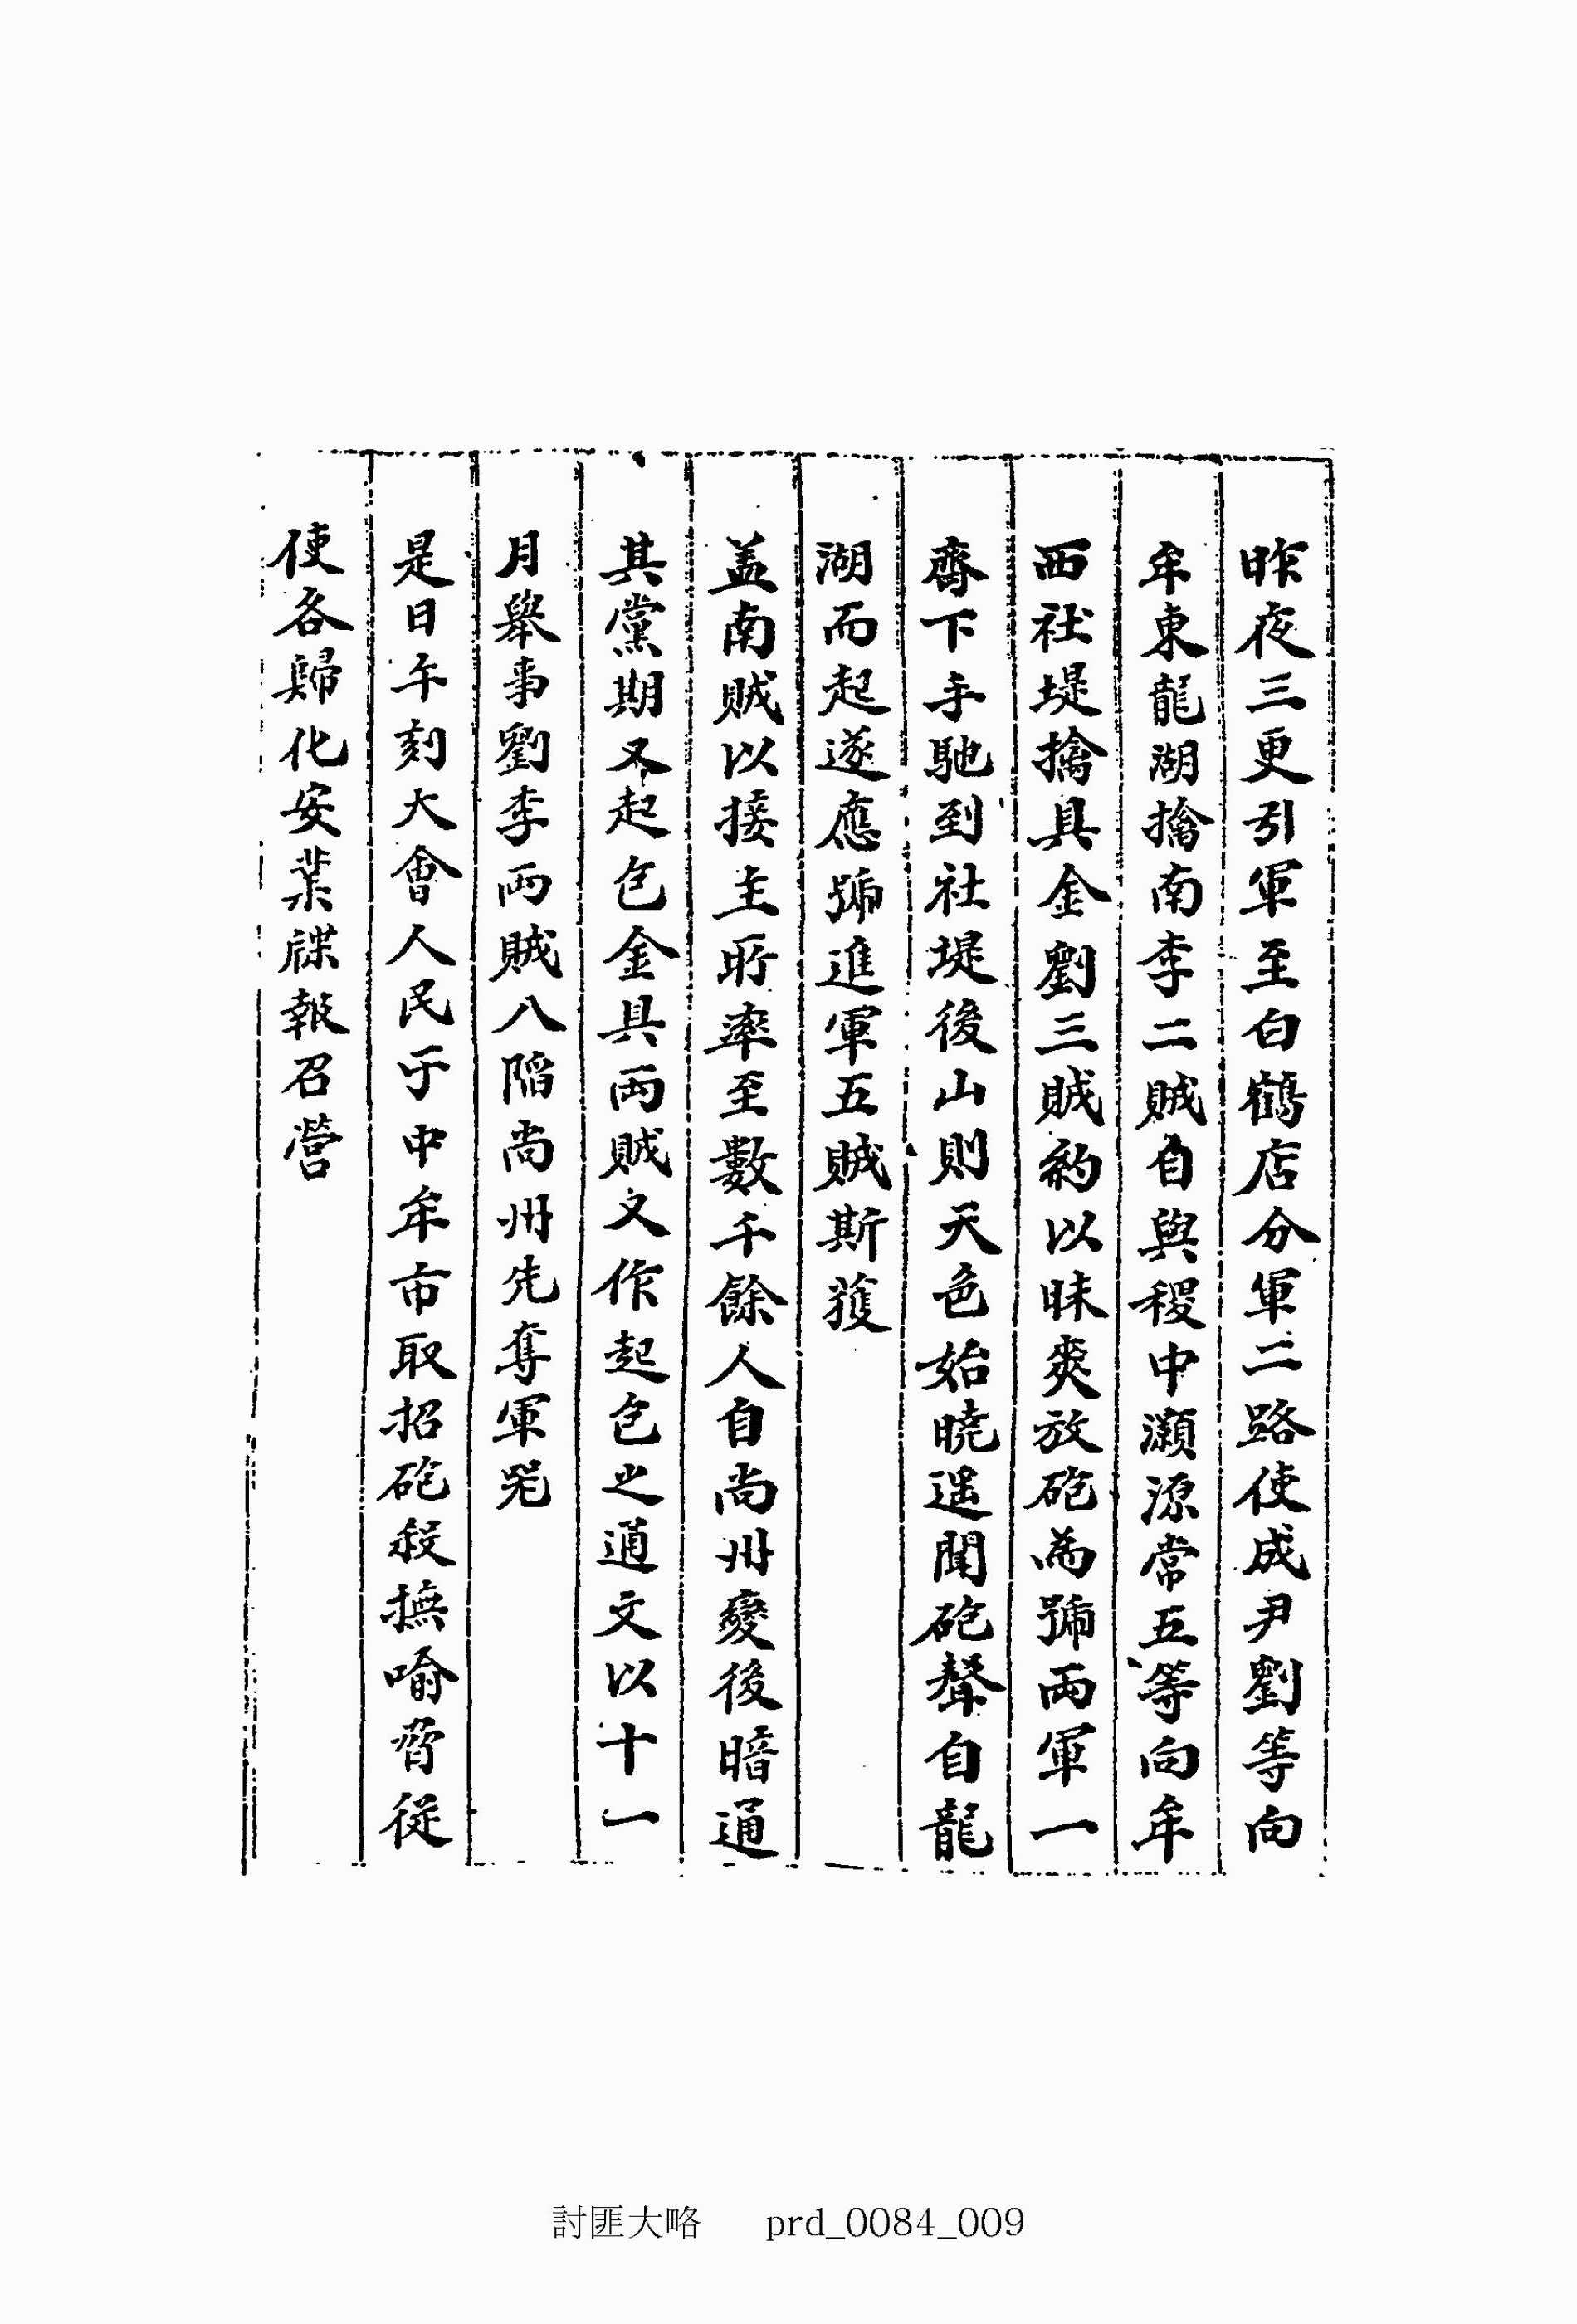 昨夜三更引軍至白鶴店分軍二路使成尹劉等向
牟東龍湖擒南李二賊自與稷中灝源常五等向牟
西社堤擒具金劉三賊約以昧爽放砲為號兩軍一
齊下手馳到社堤後山則天色始曉遥聞砲聲自龍
湖而起遂應號進軍五賊斯獲
盖南賊以接主所率至數千餘人自尚州變後暗通
其黨期又起包金具兩賊又作起包之通文以十一
月舉事劉李兩賊八陷尚州先奪軍器
是日午刻大會人民于中牟市取招砲殺撫喻脅從
使各歸化安業牒報召營
討匪大略 prd_0084_009